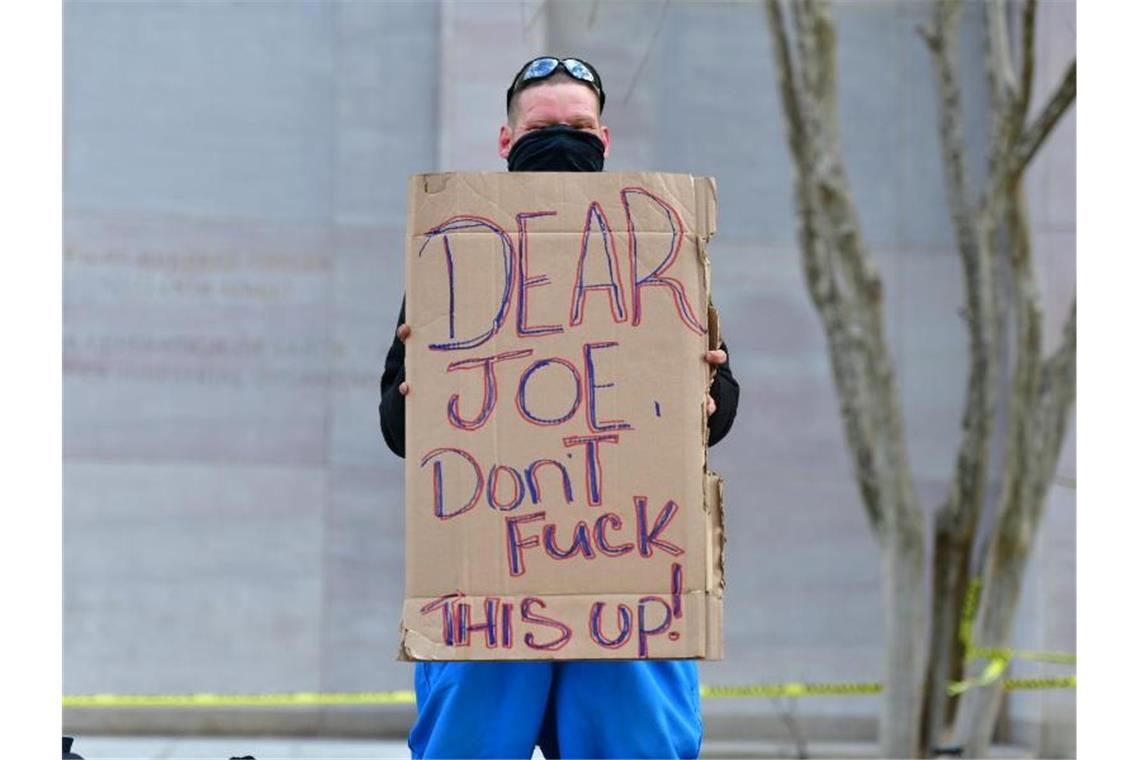 DEAR
JOE,
DON'T
FUCK
THIS UP!